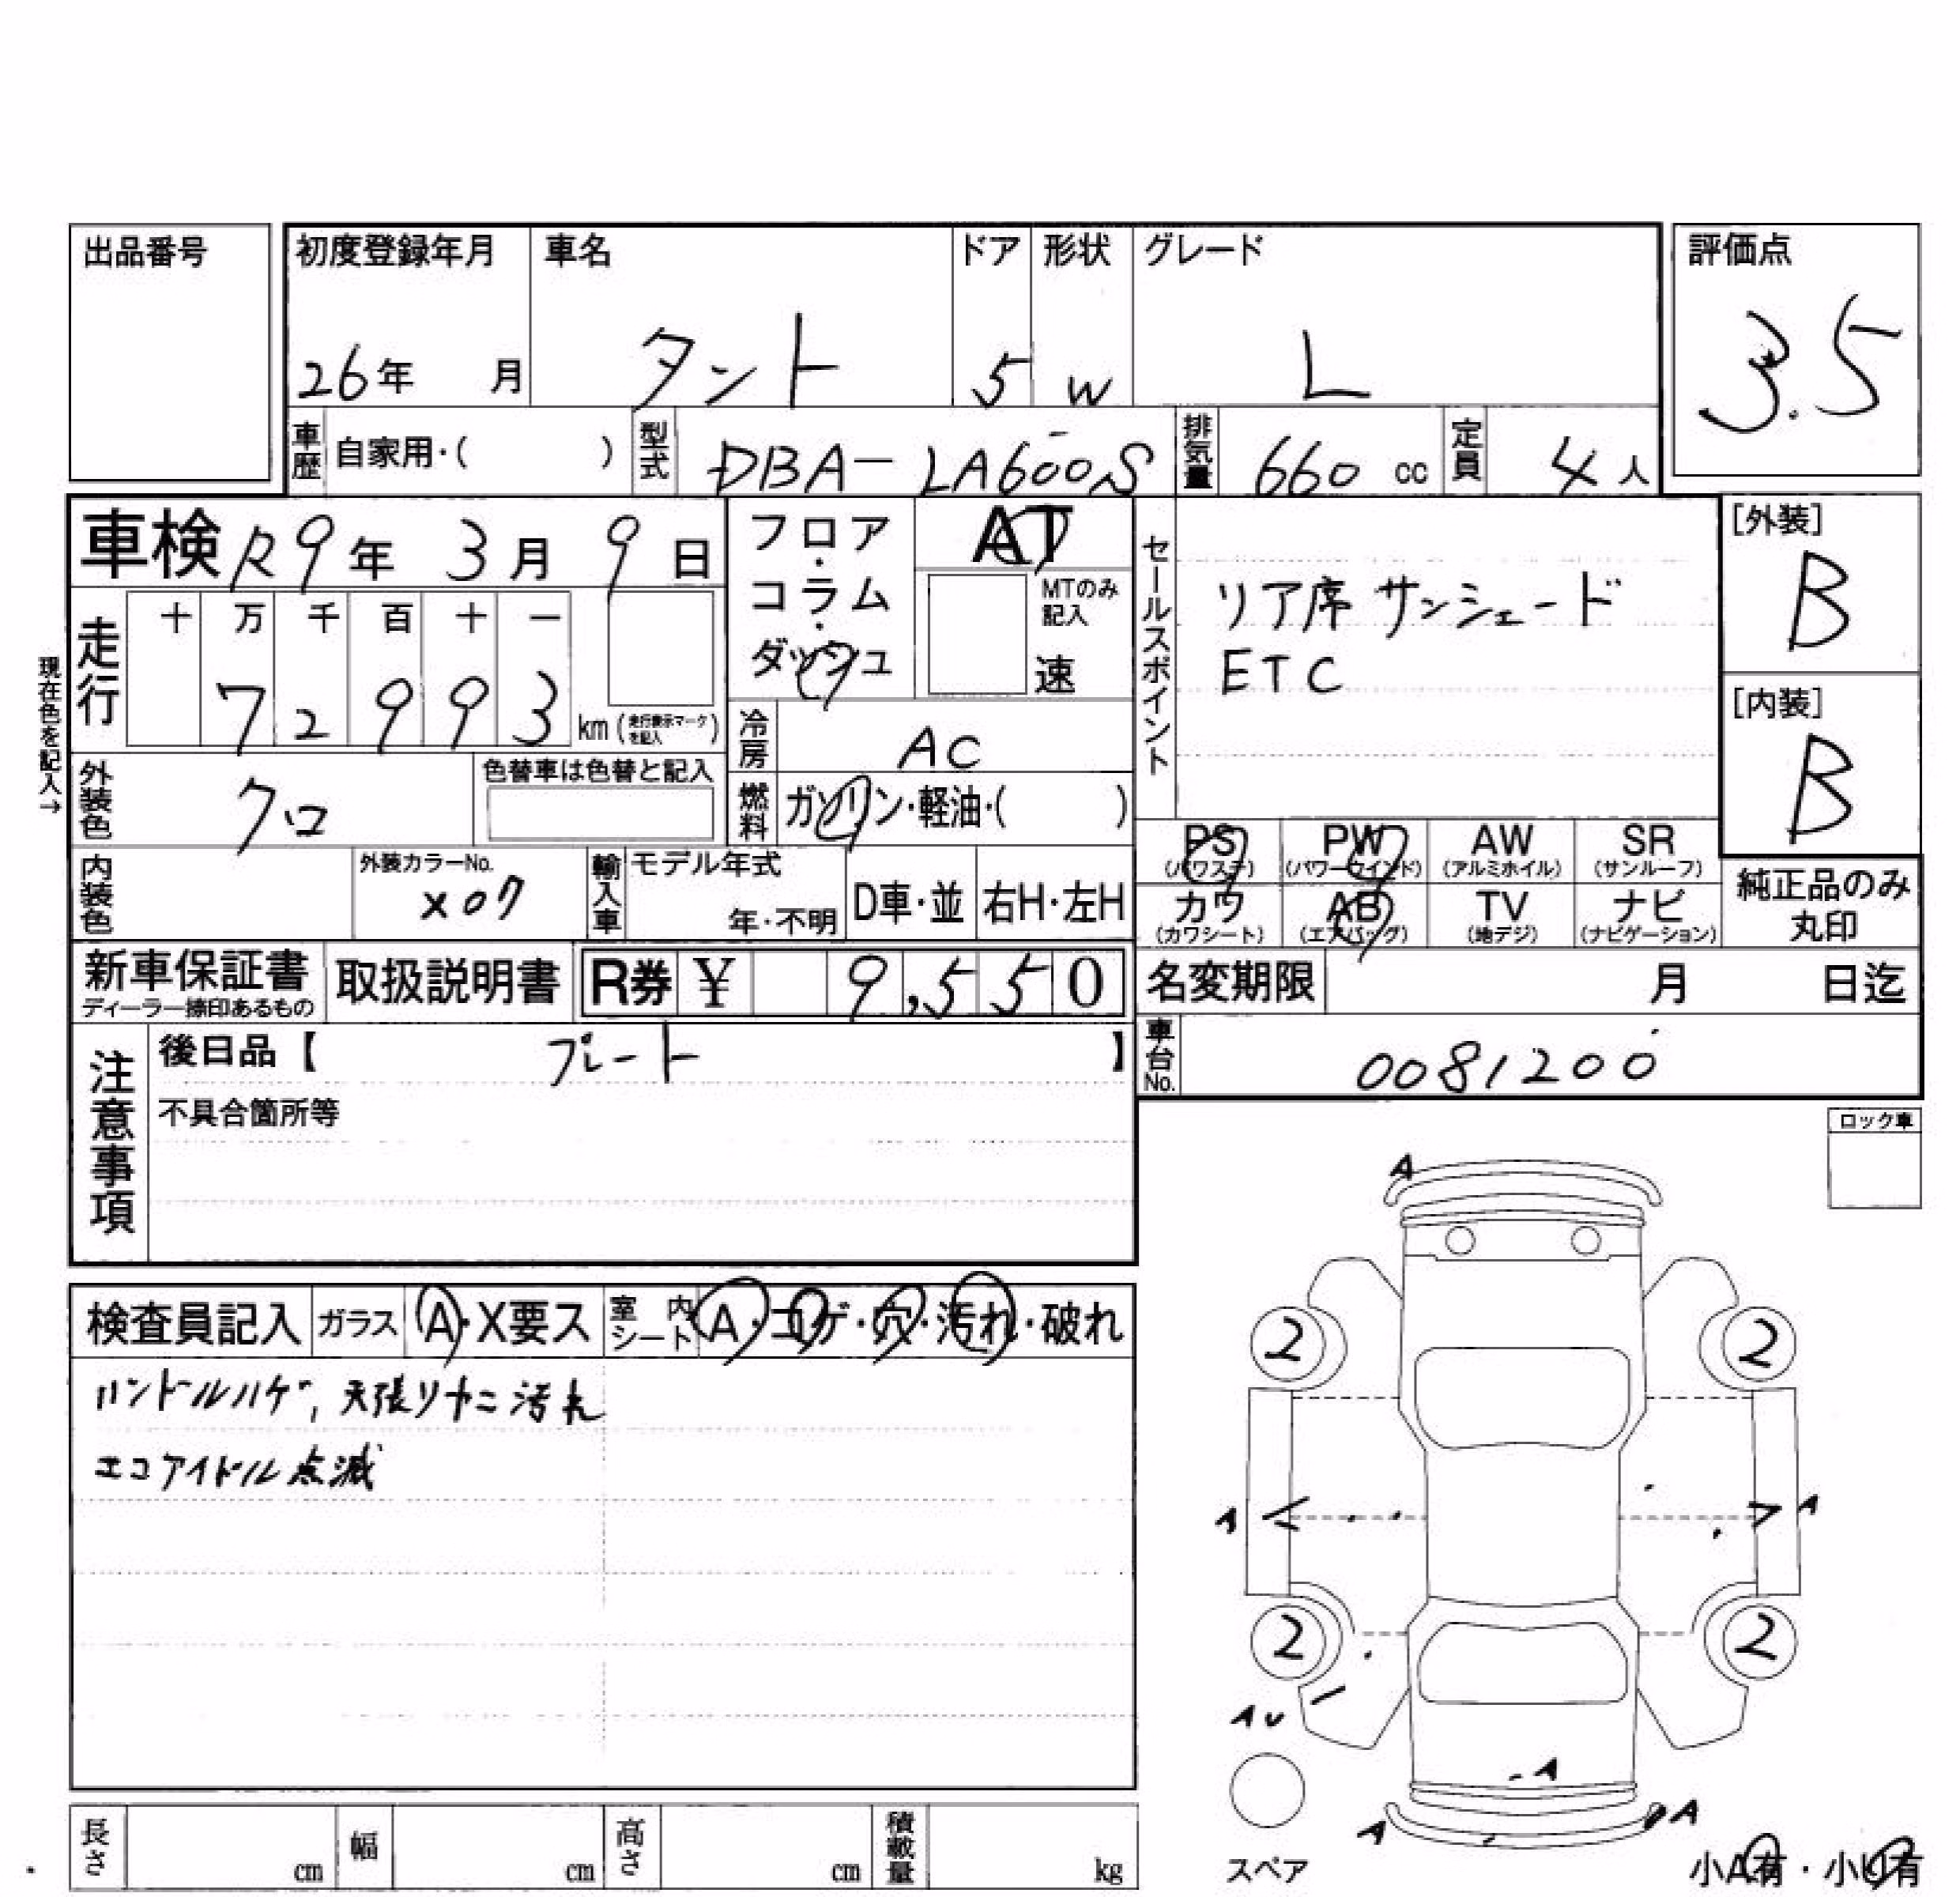 出品番号
初度登録年月 車名 ドア 形状 グレード 評価点
26年 月 タント 5 W L 3.5
車歴 自家用・( ) 型式 DBA-LA600S 排気量 660 cc 定員 4人
車検 R9年 3月 9日 フロア・コラム・ダッシュ AT
MTのみ記入 速
セールスポイント
リア席サンシェード
ETC
[外装]
B
[内装]
B
現在色を記入→
走行 十 万 千 百 十 一
7 2 9 9 3 km (走行表示マークを記入)
冷房 AC
外装色 クロ 色替車は色替と記入
燃料 ガソリン・軽油・( )
PS (パワステ) PW (パワーウインド) AW (アルミホイル) SR (サンルーフ)
カワ (カワシート) AB (エアバッグ) TV (地デジ) ナビ (ナビゲーション)
純正品のみ
丸印
内装色 外装カラーNo. X07 輸入車 モデル年式 年・不明 D車・並 右H・左H
新車保証書 取扱説明書 R券 ¥ 9,550
ディーラー捺印あるもの
名変期限 月 日迄
車台No. 0081200
注意事項
後日品【 プレート 】
不具合箇所等
ロック車
検査員記入 ガラス A・X要ス 室内シート A・コゲ・穴・汚れ・破れ
ハンドルハゲ, 天張りヤニ汚れ
エコアイドル点滅
A
2 2
A A
2 2
AU
A
A A
スペア
小A有・小U有
長さ cm 幅 cm 高さ cm 積載量 kg